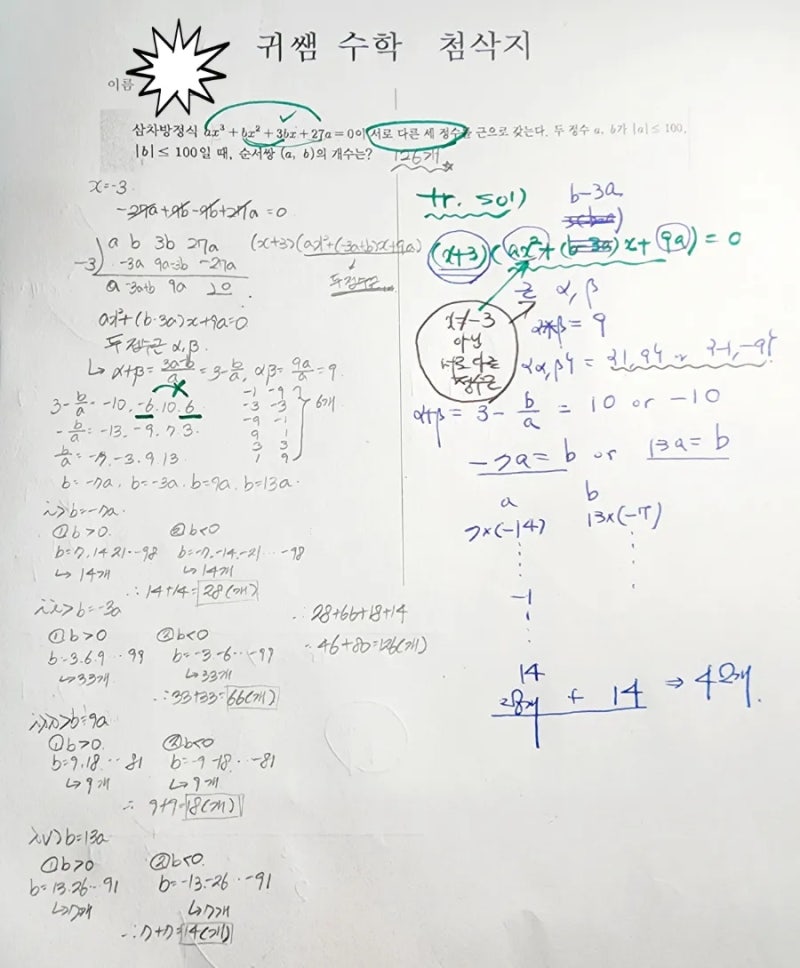 귀쌤 수학 첨삭지
이름
삼차방정식 ax³ + bx² + 3bx + 27a = 0이 서로 다른 세 정수를 근으로 갖는다. 두 정수 a, b가 |a| ≤ 100,
|b| ≤ 100일 때, 순서쌍 (a, b)의 개수는? 126개
x=-3
-27a+9b-9b+27a=0
a b 3b 27a
-3) -3a 9a-3b -27a
a -3a+b 9a 0
(x+3)(ax²+(-3a+b)x+9a)
↓
두 정수근
ax²+(b-3a)x+9a=0
두 정수근 α, β.
↳ α+β = (3a-b)/a = 3-b/a, αβ = 9a/a = 9.
3-b/a = -10, -6, 10, 6
-b/a = -13, -9, 7, 3.
b/a = -7, -3, 9, 13
-1 -9
-3 -3
-9 -1
9 1
3 3
1 9
6개
b=-7a, b=-3a, b=9a, b=13a.
i> b=-7a
① b>0 ② b<0
b=7, 14 21 ·· -98 b=-7, -14, -21 ·· -98
↳ 14개 ↳ 14개
∴ 14+14=28(개)
ii> b=-3a
① b>0 ② b<0
b=3.6.9 ·· 99 b=-3 -6 ·· -99
↳ 33개 ↳ 33개
∴ 33+33=66(개)
iii> b=9a
① b>0. ② b<0
b=9, 18 ·· 81 b=-9 -18 ·· -81
↳ 9개 ↳ 9개
∴ 9+9=18(개)
iv> b=13a
① b>0 ② b<0.
b=13.26 ·· 91 b=-13,-26 ·· -91
↳ 7개 ↳ 7개
∴ 7+7=14(개)
∴ 28+66+18+14
= 46+80=126(개)
tr. sol)
b-3a
(x+3)(ax²+( )x+9a)=0
근 α, β
x≠-3
아닌
서로 다른
정수근
αβ = 9
{α, β} = {1, 9} or {-1, -9}
α+β = 3 - b/a = 10 or -10
-7a = b or 13a = b
a b
7×(-14) 13×(-7)
-1
14
28개 + 14 ⇒ 42개.